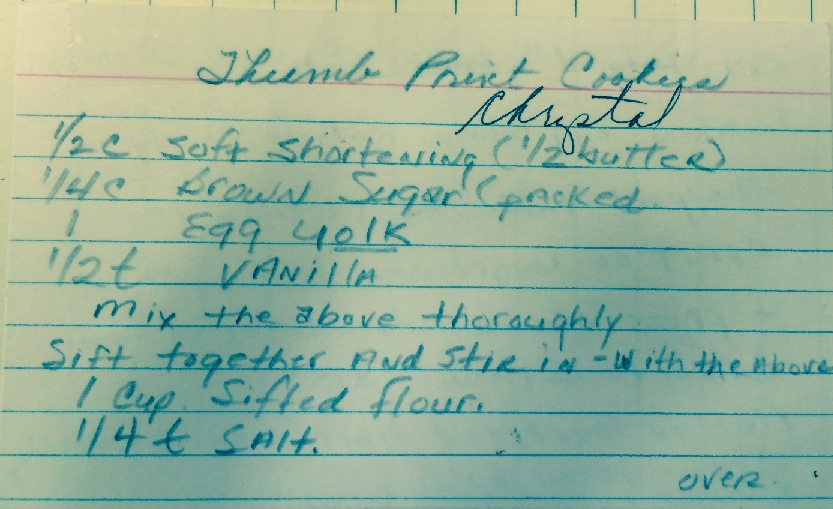 Thumb Print Cookies
Chrystal
1/2 c Soft Shortening (1/2 butter)
1/4 c Brown Sugar (packed
1 Egg yolk
1/2 t Vanilla
Mix the above thoroughly
Sift together and stir in - With the Above
1 Cup Sifted flour.
1/4 t Salt.
over